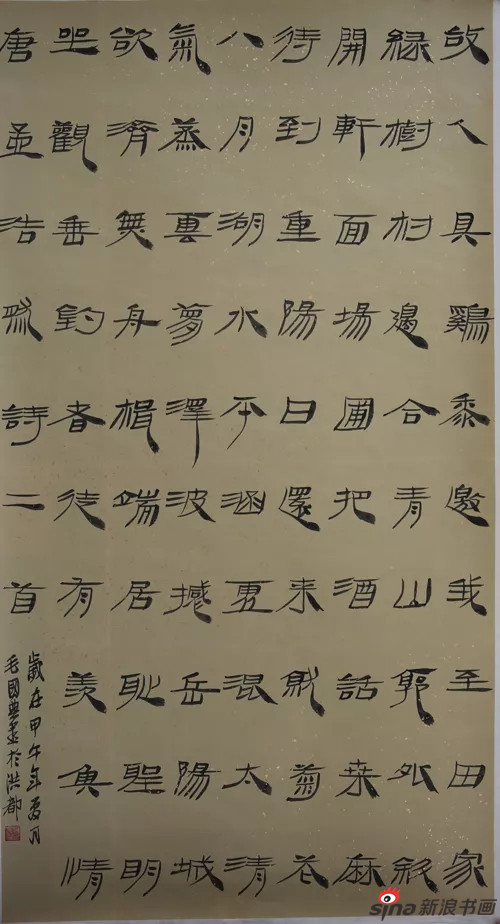 故人具鷄黍邀我至田家
緑樹村邊合青山郭外斜
開軒面場圃把酒話桑麻
待到重陽日還来就菊花
八月湖水平涵虛混太清
氣蒸雲夢澤波撼岳陽城
欲濟無舟楫端居耻聖明
坐觀垂釣者徒有羡魚情
唐孟浩然詩二首
歲在甲午年夏月
毛國典書於洪都
sina新浪书画